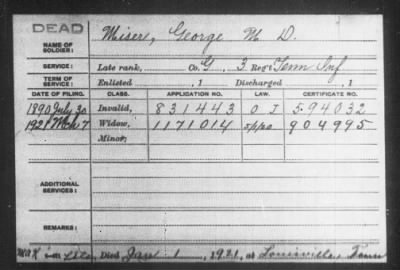 DEAD
NAME OF SOLDIER: Miser, George M D.
SERVICE: Late rank, Co. G 3 Reg't Tenn Inf
TERM OF SERVICE: Enlisted , 1 Discharged , 1
DATE OF FILING. CLASS. APPLICATION NO. LAW. CERTIFICATE NO.
1890 July 30 Invalid, 831443 594032
1921 Mch 7 Widow, 1171014 904995
Minor,
ADDITIONAL SERVICES:
REMARKS:
Died Jan 1, 1921, at Louisville Tenn